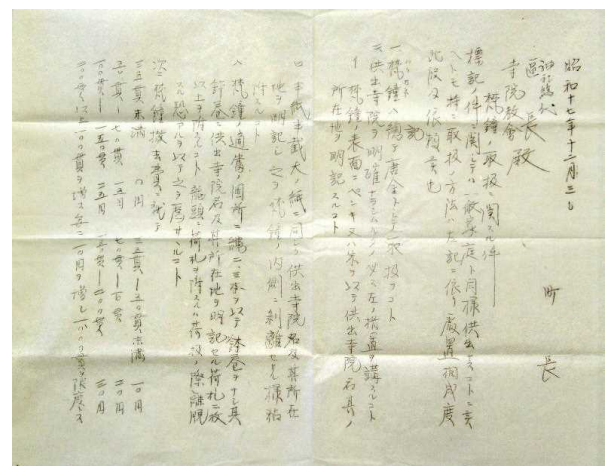 昭和十七年十二月三日
町長
区長殿
寺院教会
梵鐘ノ取扱ニ関スル件
標記ノ件ニ関シテハ一般家庭ト同様供出スコトニ
ヘトモ特ニ取扱ノ方法ハ左記ニ依リ處置相成度
此段及依頼候也
記
一、梵鐘ハ総テ屑金トシテ取扱フコト
三、供出寺院ヲ明確ナラシムル為メ左ノ措置ヲ講スルコト
イ、梵鐘ノ表面ニペンキ又ハ朱ヲ以テ供出寺院名其ノ
所在地ヲ明記スルコト
ロ、半紙半截大ノ紙ニ同シク供出寺院名及其所在
地ヲ明記シ之ヲ梵鐘ノ内側ニ剥離セヌ様貼
付スルコト
ハ、梵鐘ノ適當ノ個所ニ縄ヲ以テ鉢巻ヲナシ其
鉢巻ニ供出寺院名及其所在地ヲ明記セル荷札二枚
以上ヲ附スコト 龍頭ニ荷札ヲ附スルハ荷役ノ際離脱
ノ恐アルヲ以テ之ヲ為サザルコト
次ニ梵鐘撤去費トシテ
三五貫未満 一〇円
三五貫―五〇貫未満 一〇円
五〇貫―七〇貫 一五円
七〇貫―一〇〇貫 二〇円
一〇〇貫―一五〇貫 二五円
一五〇貫―二〇〇貫 三〇円
二〇〇貫以上一〇〇貫ヲ増ス毎ニ一〇円ヲ増シ一〇〇〇貫ヲ限度トス